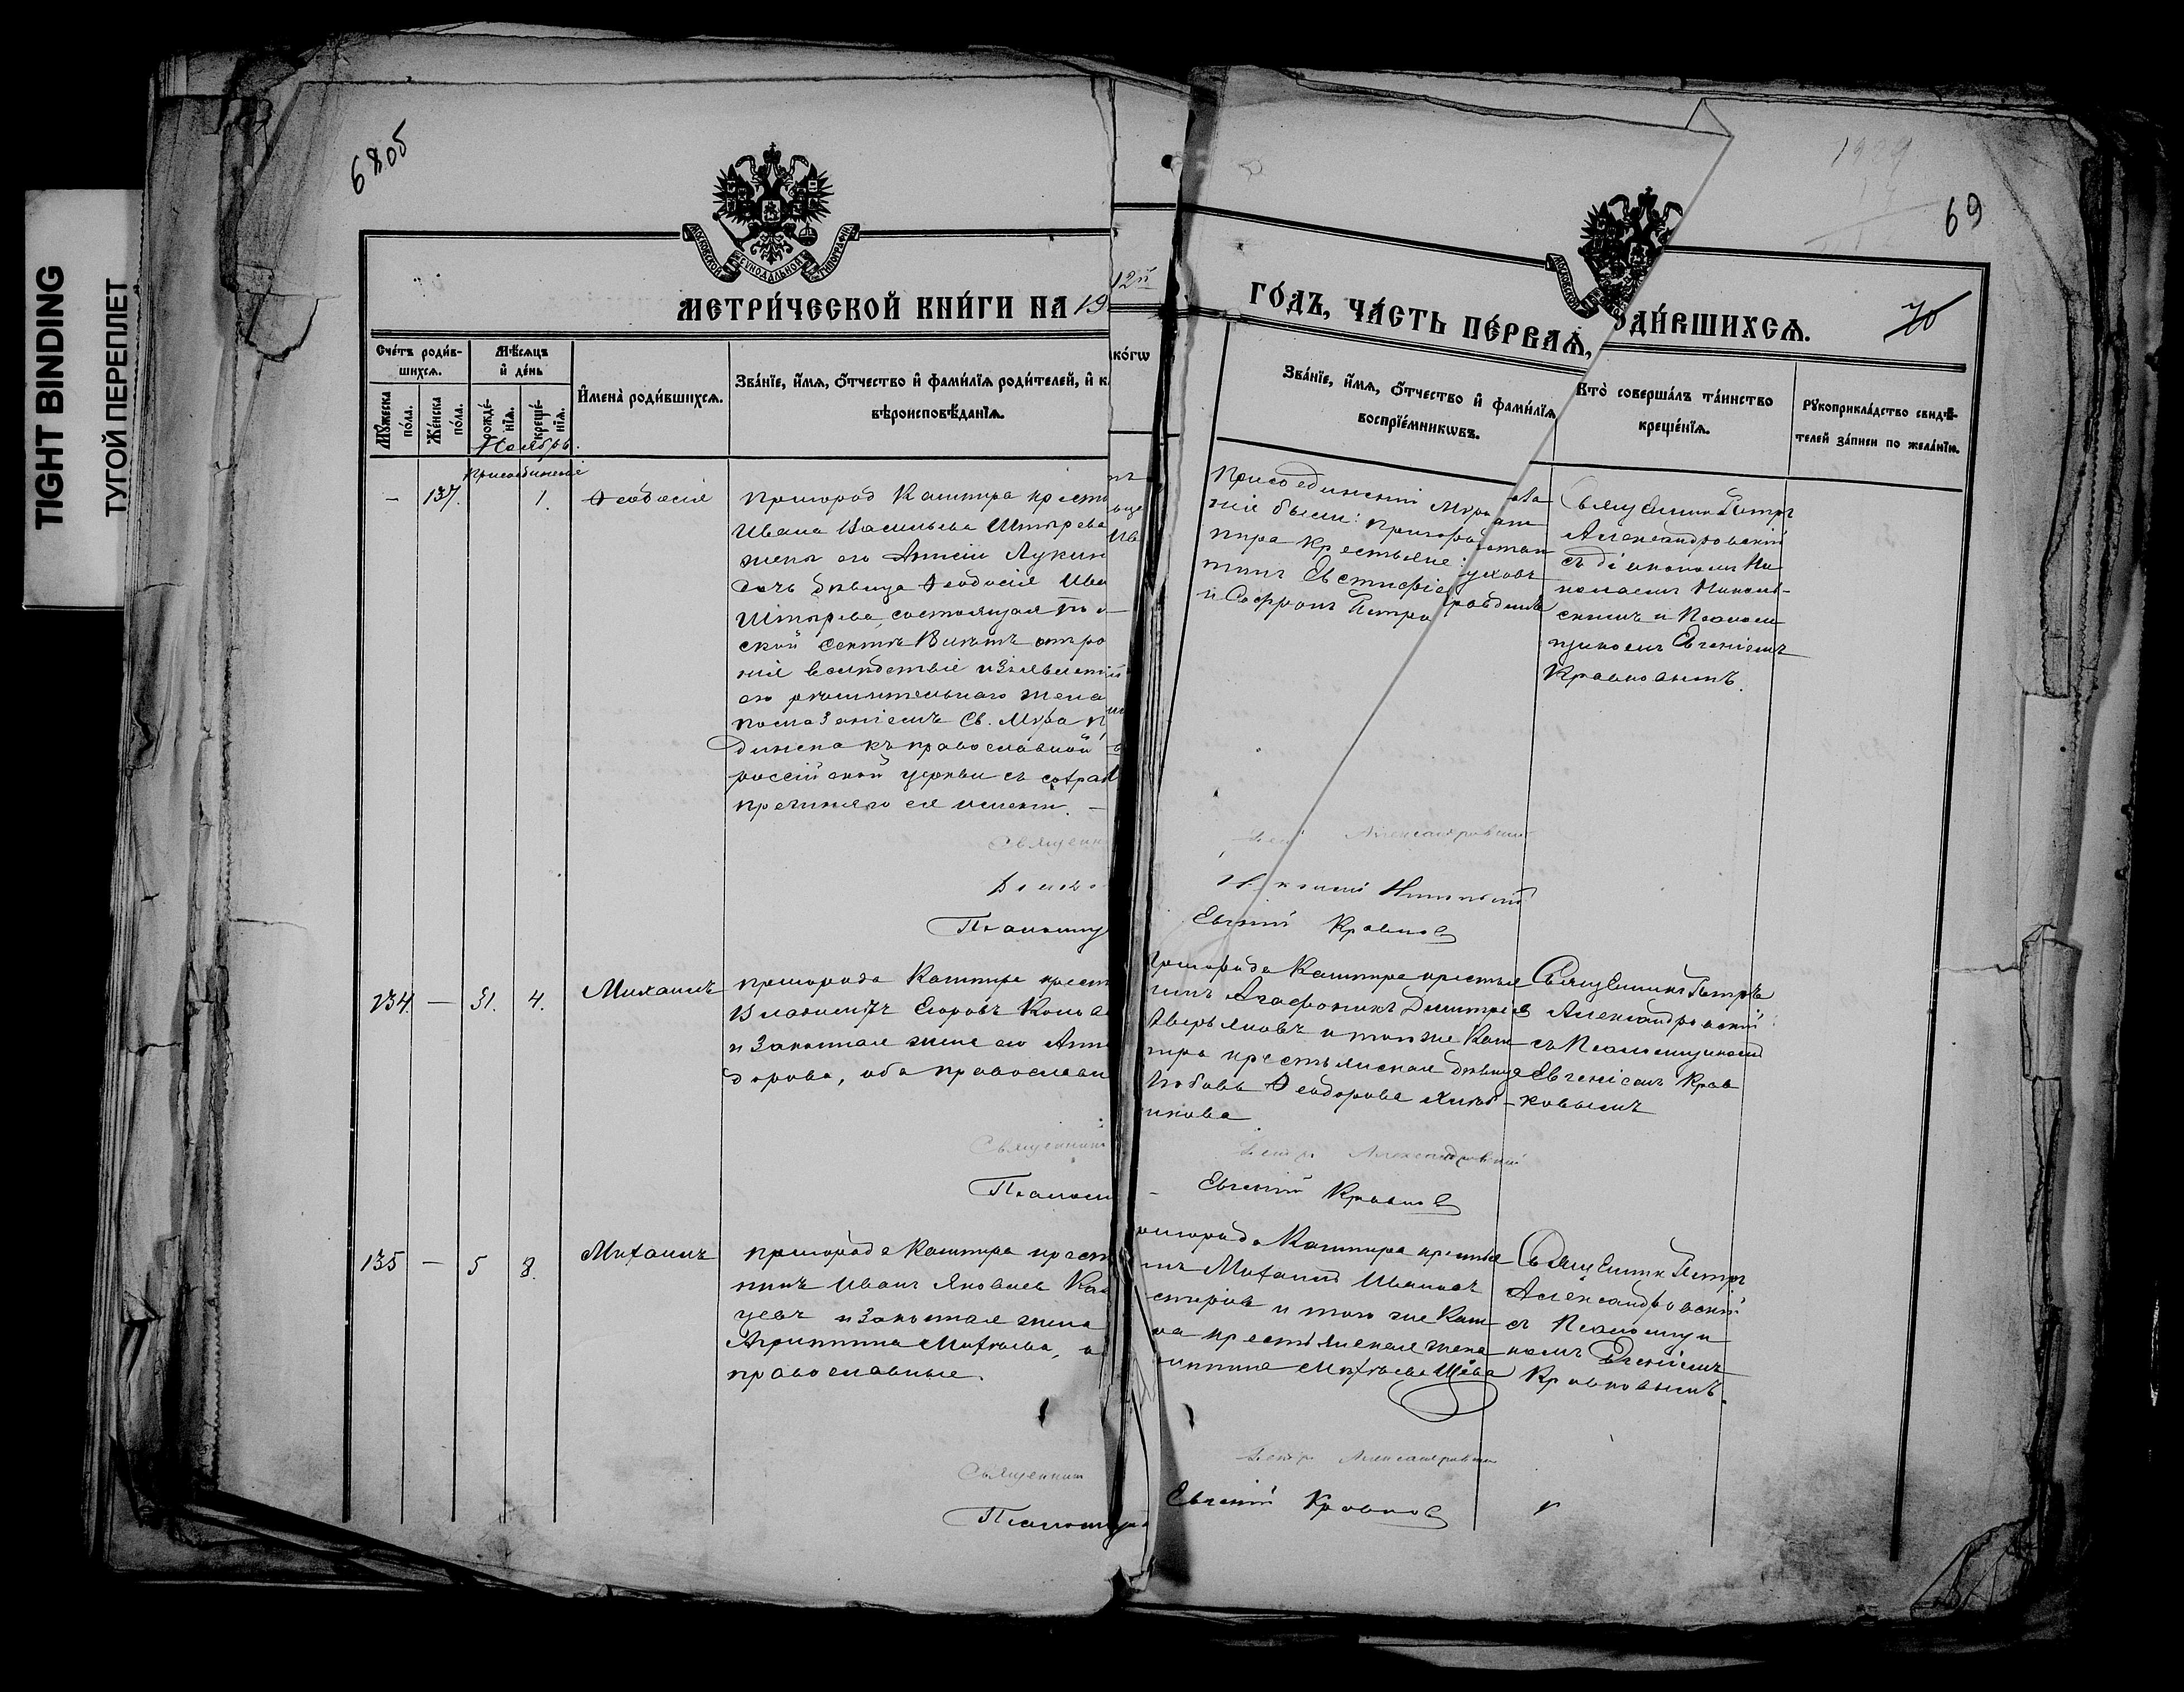 TIGHT BINDING
ТУГОЙ ПЕРЕПЛЕТ
68об
69
МЕТРИ́ЧЕСКОЙ КНИ́ГИ НА 19
12й
ГО́ДЪ, ЧА́СТЬ ПЕ́РВАѦ,
ОДИ́ВШИХСѦ.
70
Сче́тъ роди́в-
шихсѧ.
Мѣ́сѧцъ
и҆ де́нь
Мꙋ́жеска
по́ла.
Же́нска
по́ла.
рожде́-
нїѧ.
креще́-
нїѧ.
И҆мена̀ роди́вшихсѧ.
Зва́нїе, и҆́мѧ, ѻ҆́тчество и҆ фами́лїѧ роди́телей, и҆ к
ко́гѡ
вѣроисповѣ́данїѧ.
Зва́нїе, и҆́мѧ, ѻ҆́тчество и҆ фами́лїѧ
воспрїе́мникѡвъ.
Кто̀ соверша́лъ та́инство
креще́нїѧ.
Рꙋкоприкла́дство свидѣ́-
телей за́писи по жела́нїю.
Ноябрь.
Присоединеніе
— 137. 1. Ѳеодосія
пригорода Каштира кресть
Ивана Васильева Штырева
жены его Анисіи Лукин
дочь дѣвица Ѳеодосія Ива
Штырева, состоящая
ской сектѣ
нія вслѣдствіе изъявлен
его рѣшительнаго жела
помазаніемъ Св. Мѵра п
динена къ православной
россійской церкви съ сохра
прежняго ея имени. —
Присоединенія
нія были: пригорода
тира крестьяне
Евстафій
и Софронъ Петро
Священникъ Петръ
Александровскій
съ діакономъ Ни
колаемъ Николь-
скимъ и Псалом
щикомъ Евгеніемъ
Кравковымъ.
Священн
Александровскій
Діако
Псаломщ
Евгеній Кравков
134. — 31. 4. Михаилъ
пригорода Каштира крест
Владиміръ Егоровъ Коно
и законная жена его Анна
дорова, оба православн
пригорода Каштира крестья
нинъ Агафоникъ Димитріев
Аверьяновъ и того же Каш
тира крестьянская дѣвица
Любовь Ѳеодорова
икова
Священникъ Петръ
Александровскій
съ Псаломщикомъ
Евгеніемъ Крав
ковымъ
Священник
Петръ Александровскій
Псалом
Евгеній Кравков
135 — 5 8. Михаилъ
пригорода Каштира крест
нинъ Иванъ Яковлев Ка
цевъ и законная жена
Агриппина Матвѣева, о
православные.
ригорода Каштира крестья
нъ Михаилъ Ивановъ
и того же Каш
ра крестьянская жена
Матвѣева
Священникъ Петръ
Александровскій
съ Псаломщи
комъ Евгеніемъ
Кравковымъ.
Священник
Петръ Александровскій
Псаломщ
Евгеній Кравков